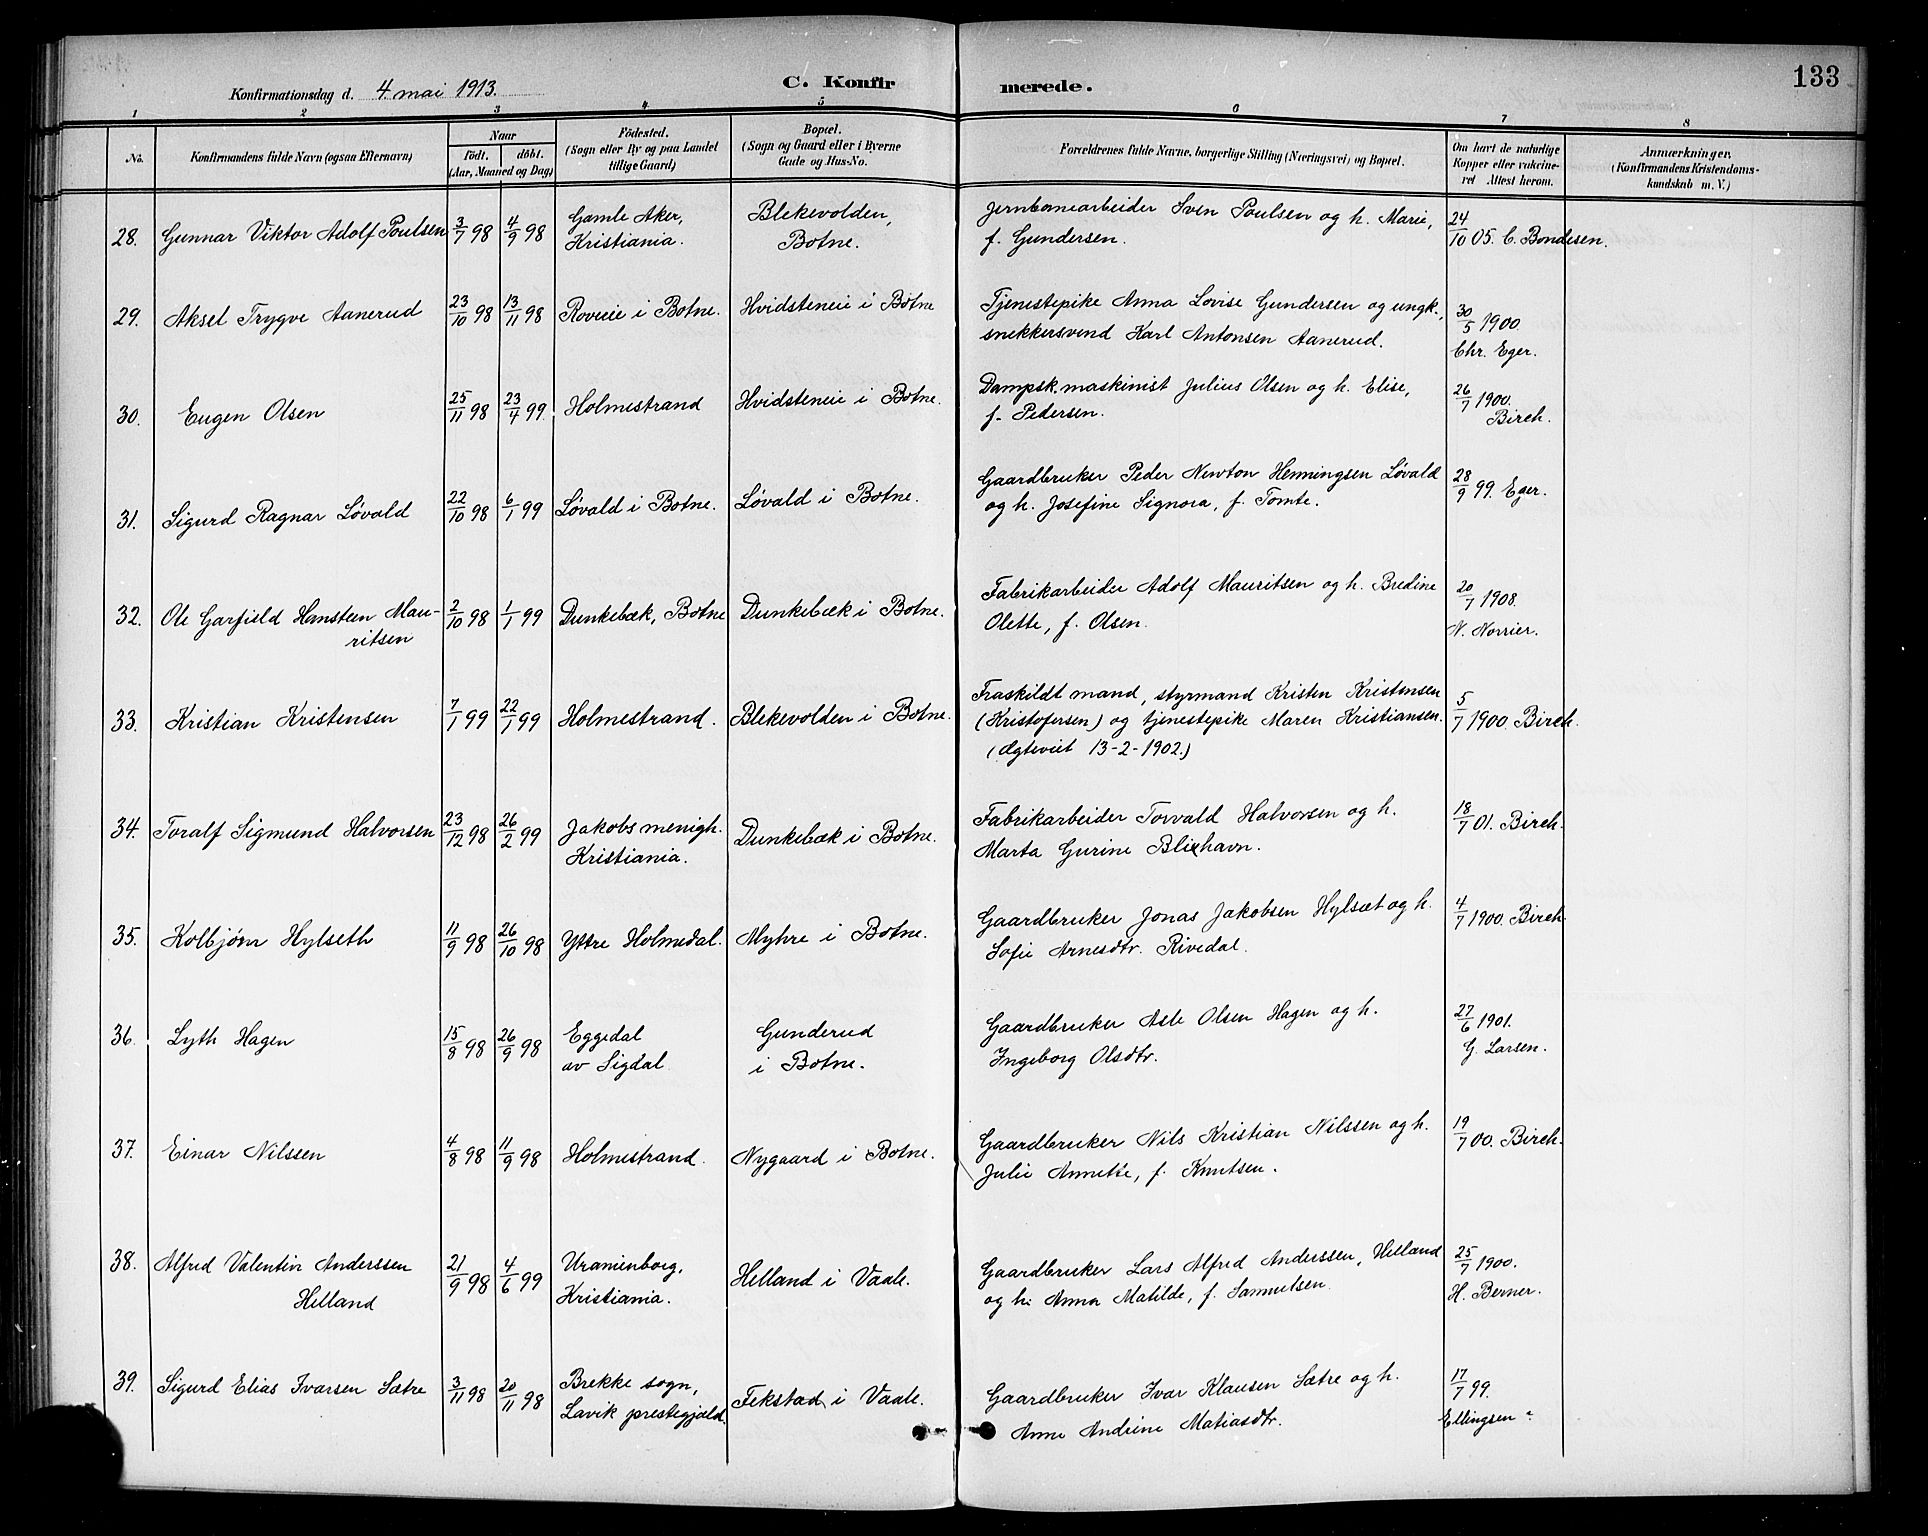 133
C. Konfir merede.
Konfirmationsdag d. 4 mai 1913.
1 2 3 4 5 6 7 8
No.
Konfirmandens fulde Navn (ogsaa Efternavn)
Naar
födt. döbt.
(Aar, Maaned og Dag)
Födested.
(Sogn eller By og paa Landet
tillige Gaard)
Bopæl.
(Sogn og Gaard eller i Byerne
Gade og Hus-No.
Forældrenes fulde Navne, borgerlige Stilling (Næringsvei) og Bopæl.
Om havt de naturlige
Kopper eller vakcine-
ret Attest herom.
Anmærkninger.
(Konfirmandens Kristendoms-
kundskab m. V.)
28. Gunnar Viktor Adolf Poulsen 3/7 98 4/9 98
Gamle Aker,
Kristiania.
Blekevolden,
Botne.
Jernbanearbeider Sven Poulsen og h. Marie,
f. Gundersen.
24/10 05. C. Bondesen.
29. Aksel Trygve Aanerud 23/10 98 13/11 98 Roveie i Botne. Hvidsteneie i Botne
Tjenestepike Anna Lovise Gundersen og ungk.,
snekkersvend Karl Antonsen Aanerud.
30/5 1900.
Chr. Eger.
30. Eugen Olsen 25/11 98 23/4 99. Holmestrand Hvidsteneie i Botne.
Dampsk.maskinist Julius Olsen og h. Elise,
f. Pedersen.
26/7 1900.
Birch.
31. Sigurd Ragnar Løvald 22/10 98 6/1 99 Løvald i Botne. Løvald i Botne.
Gaardbruker Peder Newton Henningsen Løvald
og h. Josefine Signora, f. Tomte.
28/9 99. Eger.
32. Ole Garfield Hansteen Mau-
ritsen
2/10 98 1/1 99 Dunkebæk, Botne Dunkebæk i Botne.
Fabrikarbeider Adolf Mauritsen og h. Bredine
Olette, f. Olsen.
20/7 1908.
N. Norrier.
33. Kristian Kristensen 7/1 99 22/1 99 Holmestrand. Blekevolden i Botne.
Fraskildt mand, styrmand Kristen Kristensen
(Kristofersen) og tjenestepike Maren Kristiansen.
(ægteviet 13-2-1902.)
5/7 1900. Birch.
34. Toralf Sigmund Halvorsen 23/12 98 26/2 99
Jakobs menigh.
Kristiania.
Dunkebæk i Botne.
Fabrikarbeider Torvald Halvorsen og h.
Marta Gurine Blixhavn.
18/7 01. Birch.
35. Kolbjørn Hylseth 11/9 98 26/10 98 Yttre Holmedal. Myhre i Botne.
Gaardbruker Jonas Jakobsen Hylsæt og h.
Sofie Arnesdtr. Rivedal.
4/7 1900. Birch
36. Lyth Hagen 15/8 98 26/9 98
Eggedal
av Sigdal
Gunderud
i Botne.
Gaardbruker Asle Olsen Hagen og h.
Ingeborg Olsdtr.
27/6 1901.
G. Larsen.
37. Einar Nilssen 4/8 98 11/9 98 Holmestrand. Nygaard i Botne.
Gaardbruker Nils Kristian Nilssen og h.
Julie Annette, f. Knutsen.
19/7 00. Birch.
38. Alfred Valentin Anderssen
Helland
21/9 98 4/6 99
Uranienborg,
Kristiania.
Helland i Vaale.
Gaardbruker Lars Alfred Anderssen, Helland
og h. Anna Matilde, f. Samuelsen.
25/7 1900.
H. Berner.
39. Sigurd Elias Ivarsen Sætre 3/11 98 20/11 98
Brekke sogn,
Lavik prestegjæld.
Fekstad i Vaale.
Gaardbruker Ivar Klausen Sætre og h.
Anne Andrine Matiasdtr.
17/7 99.
Ellingsen